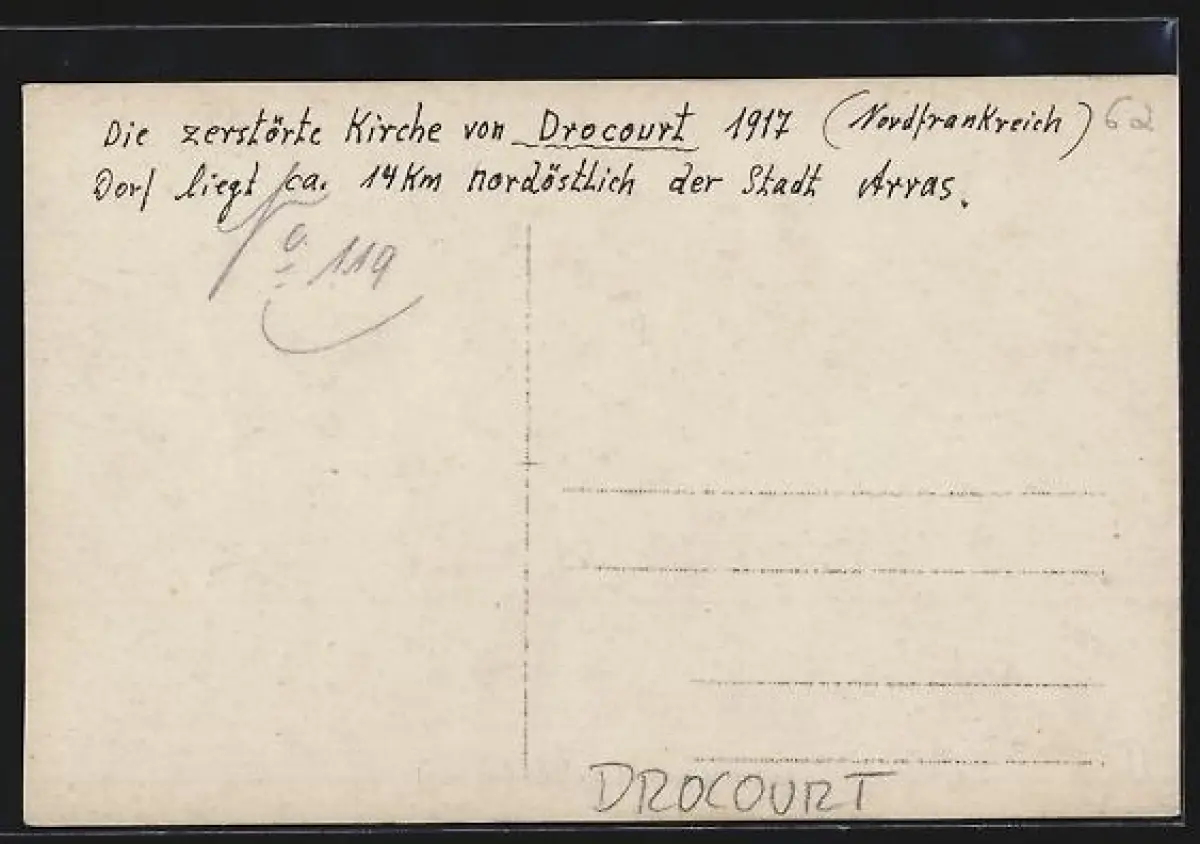 Die zerstörte Kirche von Drocourt 1917 (Nordfrankreich) 62
Dorf liegt ca. 14 Km nordöstlich der Stadt Arras.
119
DROCOURT